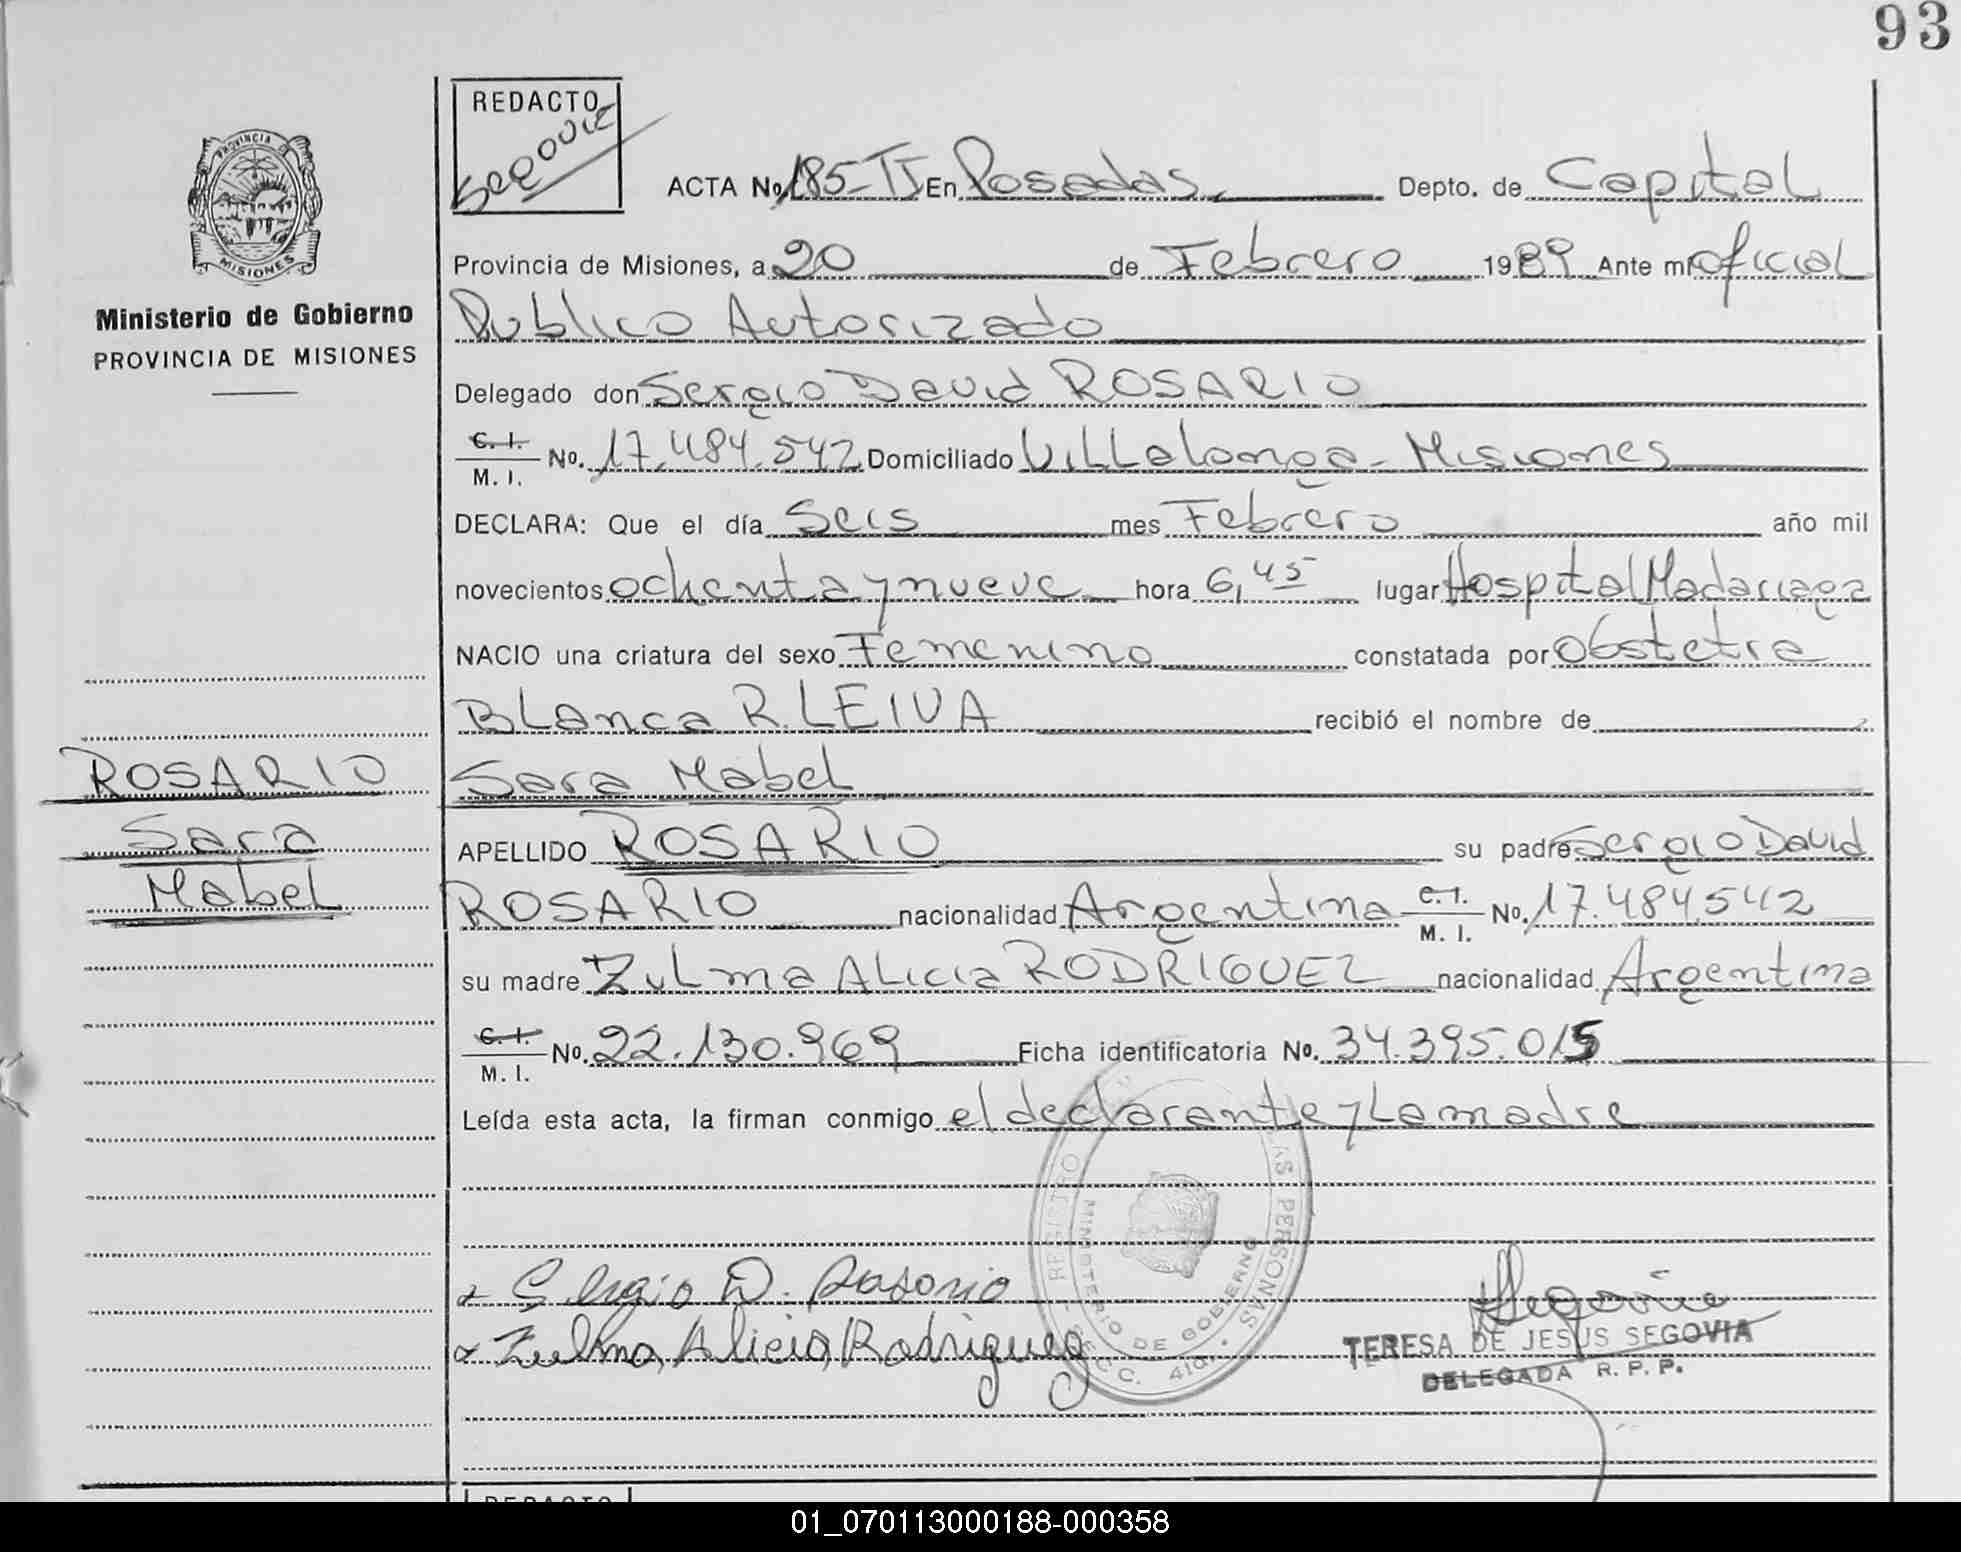 93
PROVINCIA DE
MISIONES
Ministerio de Gobierno
PROVINCIA DE MISIONES
ROSARIO
Sara
Mabel
REDACTO
ACTA No. 185-TI En Posadas Depto. de Capital
Provincia de Misiones, a 20 de Febrero 1989 Ante mi oficial
Publico Autorizado
Delegado don Sergio David ROSARIO
C. I.
M. I. No. 17.484.542 Domiciliado Villalonga - Misiones
DECLARA: Que el día Seis mes Febrero año mil
novecientos ochenta y nueve hora 6,45 lugar Hospital Madariaga
NACIO una criatura del sexo Femenino constatada por Obstetra
Blanca R. LEIVA recibió el nombre de
Sara Mabel
APELLIDO ROSARIO su padre Sergio David
ROSARIO nacionalidad Argentina C. I. M. I. No. 17.484.542
su madre Zulma Alicia RODRIGUEZ nacionalidad Argentina
C. I.
M. I. No. 22.130.969 Ficha identificatoria No. 34.395.015
Leída esta acta, la firman conmigo el declarante y La madre
REGISTRO AS PERSONAS
MINISTERIO DE GOBIERNO
SECC. 41a.
Sergio D. Rosario
Zulma Alicia Rodriguez
Segovia
TERESA DE JESUS SEGOVIA
DELEGADA R. P. P.
REDACTO
01_070113000188-000358